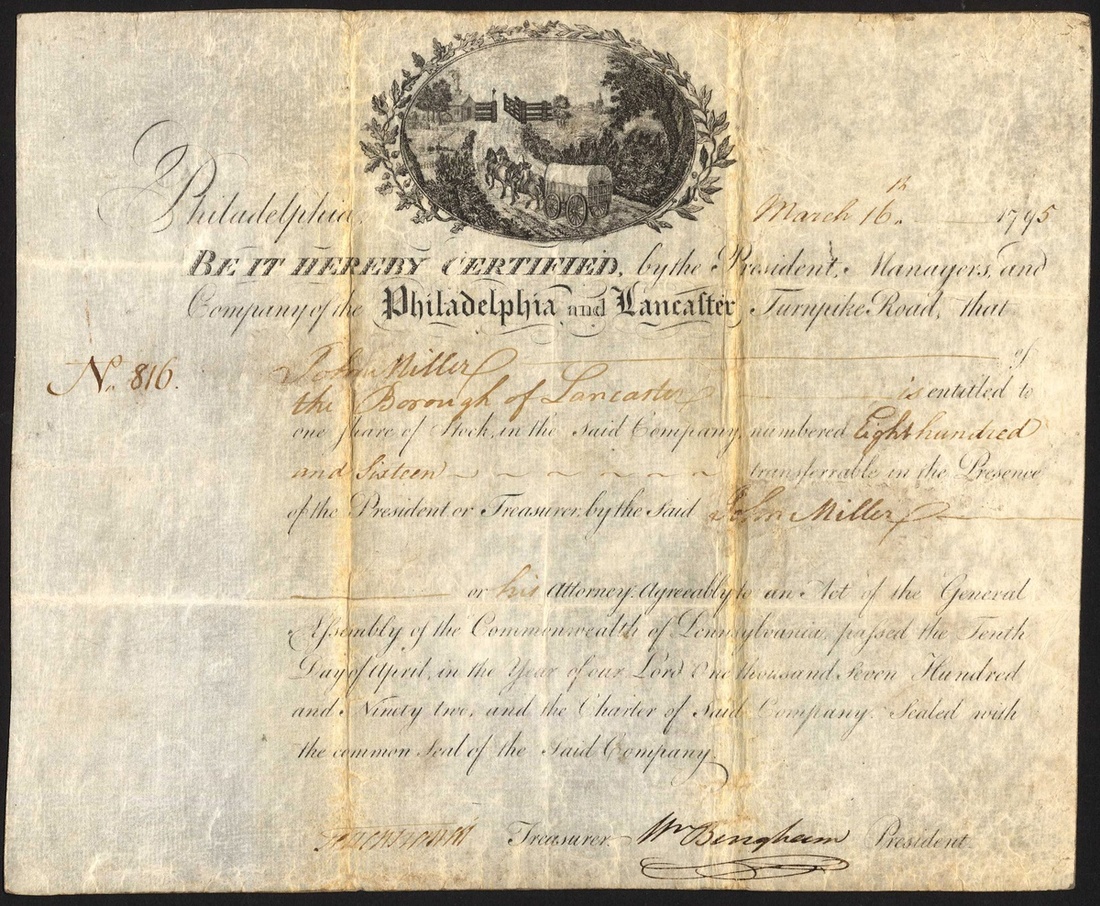 Philadelphia March 16.th 1795
BE IT HEREBY CERTIFIED, by the President, Managers, and
Company of the Philadelphia and Lancaster Turnpike Road, that
No. 816. John Miller of
the Borough of Lancaster is entitled to
one Share of Stock, in the said Company, numbered Eight hundred
and Sixteen transferrable in the Presence
of the President or Treasurer, by the Said John Miller
or his Attorney. Agreeably to an Act of the General
Assembly of the Commonwealth of Pennsylvania, passed the Tenth
Day of April, in the Year of our Lord One thousand Seven Hundred
and Ninety two, and the Charter of Said Company. Sealed with
the common Seal of the Said Company.
Treasurer. Wm Bingham President.